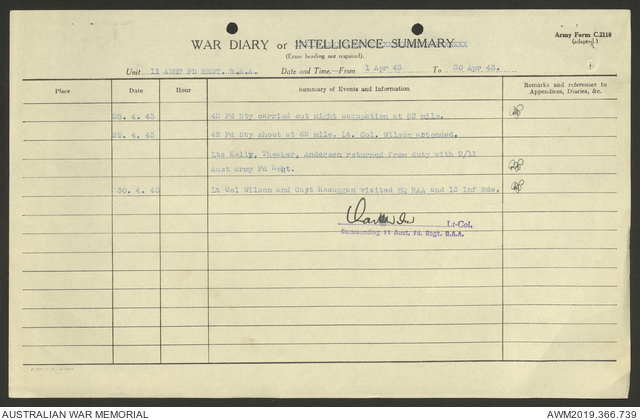 Army Form C.2118
(adapted.)
WAR DIARY or INTELLIGENCE SUMMARY
(Erase heading not required).
Unit 11 AUST FD REGT. R.A.A. Date and Time.—From 1 Apr 43 To 30 Apr 43.
Place Date Hour Summary of Events and Information Remarks and references to
Appendices, Diaries, &c.
28. 4. 43 42 Fd Bty carried out night occupation at 62 mile.
29. 4. 43 42 Fd Bty shoot at 62 mile. Lt. Col. Wilson attended.
Lts Kelly, Andersen returned from duty with 2/11
Aust Army Fd Regt.
30. 4. 43 Lt Col Wilson and Capt visited RAA and 13 Inf Bde.
Lt-Col.
Commanding 11 Aust. Fd. Regt. R.A.A.
AUSTRALIAN WAR MEMORIAL AWM2019.366.739